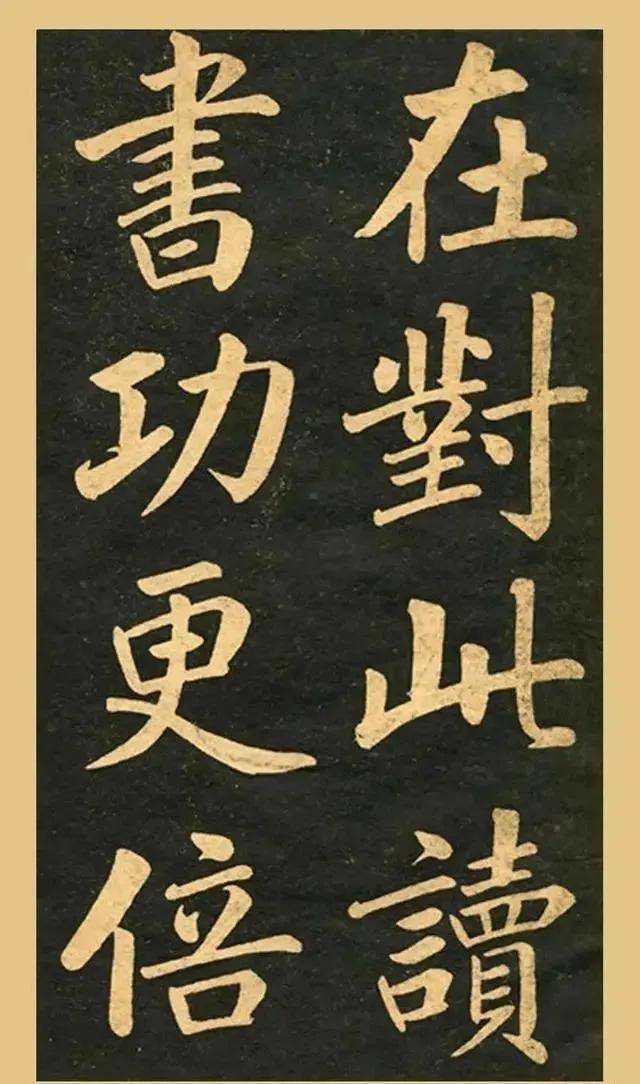 在對此讀
書功更倍